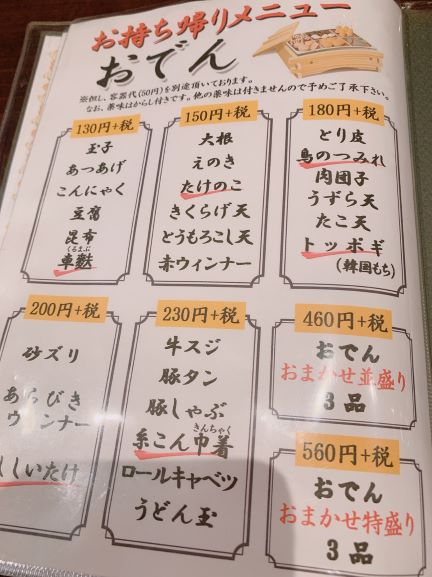 お持ち帰りメニュー
おでん
※但し、容器代(50円)を別途頂いております。
なお、薬味はからし付きです。他の薬味は付きませんので予めご了承下さい。
130円+税
玉子
あつあげ
こんにゃく
豆腐
昆布
くるまぶ
車麩
150円+税
大根
えのき
たけのこ
きくらげ天
とうもろこし天
赤ウィンナー
180円+税
とり皮
鳥のつみれ
肉団子
うずら天
たこ天
トッポギ
(韓国もち)
200円+税
砂ズリ
あらびき
ウィンナー
しいたけ
230円+税
牛スジ
豚タン
豚しゃぶ
きんちゃく
糸こん巾着
ロールキャベツ
うどん玉
460円+税
おでん
おまかせ並盛り
3品
560円+税
おでん
おまかせ特盛り
3品